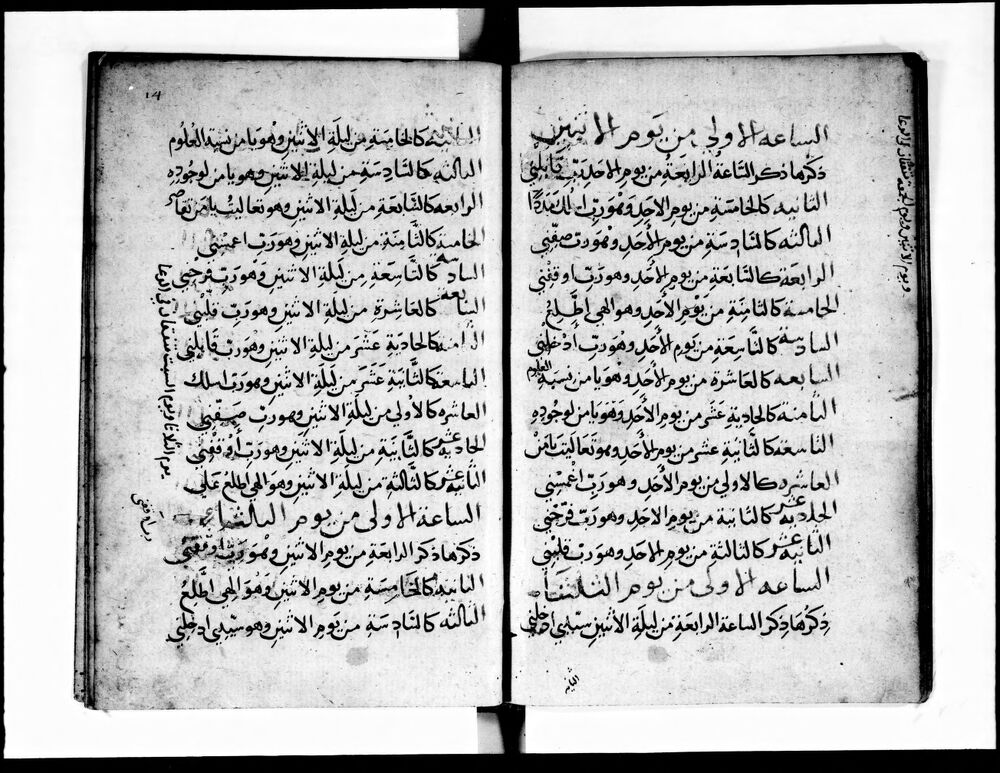 الساعة الاولى من يوم الاثنين
ذكرها ذكر الساعة الرابعة من يوم الاحد رب قابلني
الثانية كالخامسة من يوم الاحد وهو رب
الثالثة كالسادسة من يوم الاحد وهو رب صفني
الرابعة كالسابعة من يوم الاحد وهو رب اوقفني
الخامسة كالثامنة من يوم الاحد وهو الهي اطلع
السادسة كالتاسعة من يوم الاحد وهو رب ادخلني
السابعة كالعاشرة من يوم الاحد وهو يا من نسبة العلوم
الثامنة كالحادية عشر من يوم الاحد وهو يا من لوجوده
التاسعة كالثانية عشر من يوم الاحد وهو تعاليت يا من
العاشرة كالاولى من يوم الاحد وهو رب اغمسني
الحادية عشر كالثانية من يوم الاحد وهو رب فرحني
الثانية عشر كالثالثة من يوم الاحد وهو رب قلبني
الساعة الاولى من يوم
ذكرها ذكر الساعة الرابعة من ليلة الاثنين سيدي ادخلني
الثانية
ويوم الاثنين ويوم الجمعة
14
الثانية كالخامسة من ليلة الاثنين وهو يا من نسبة العلوم
الثالثة كالسادسة من ليلة الاثنين وهو يا من لوجوده
الرابعة كالسابعة من ليلة الاثنين وهو تعاليت يا من
الخامسة كالثامنة من ليلة الاثنين وهو رب اغمسني
السادسة كالتاسعة من ليلة الاثنين وهو رب فرحني
السابعة كالعاشرة من ليلة الاثنين وهو رب قلبني
الثامنة كالحادية عشر من ليلة الاثنين وهو رب قابلني
التاسعة كالثانية عشر من ليلة الاثنين وهو رب
العاشرة كالاولى من ليلة الاثنين وهو رب صفني
الحادية عشر كالثانية من ليلة الاثنين وهو رب اوقفني
الثانية عشر كالثالثة من ليلة الاثنين وهو الهي اطلع على
الساعة الاولى من يوم
ذكرها ذكر الرابعة من يوم الاثنين وهو رب اوقفني
الثانية كالخامسة من يوم الاثنين وهو الهي اطلع
الثالثة كالسادسة من يوم الاثنين وهو سيدي ادخلني
يوم الثلاثا ويوم السبت